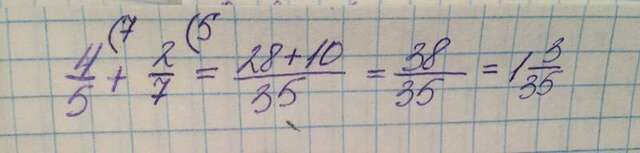 4/5 (7 + 2/7 (5 = 28+10/35 = 38/35 = 1 3/35